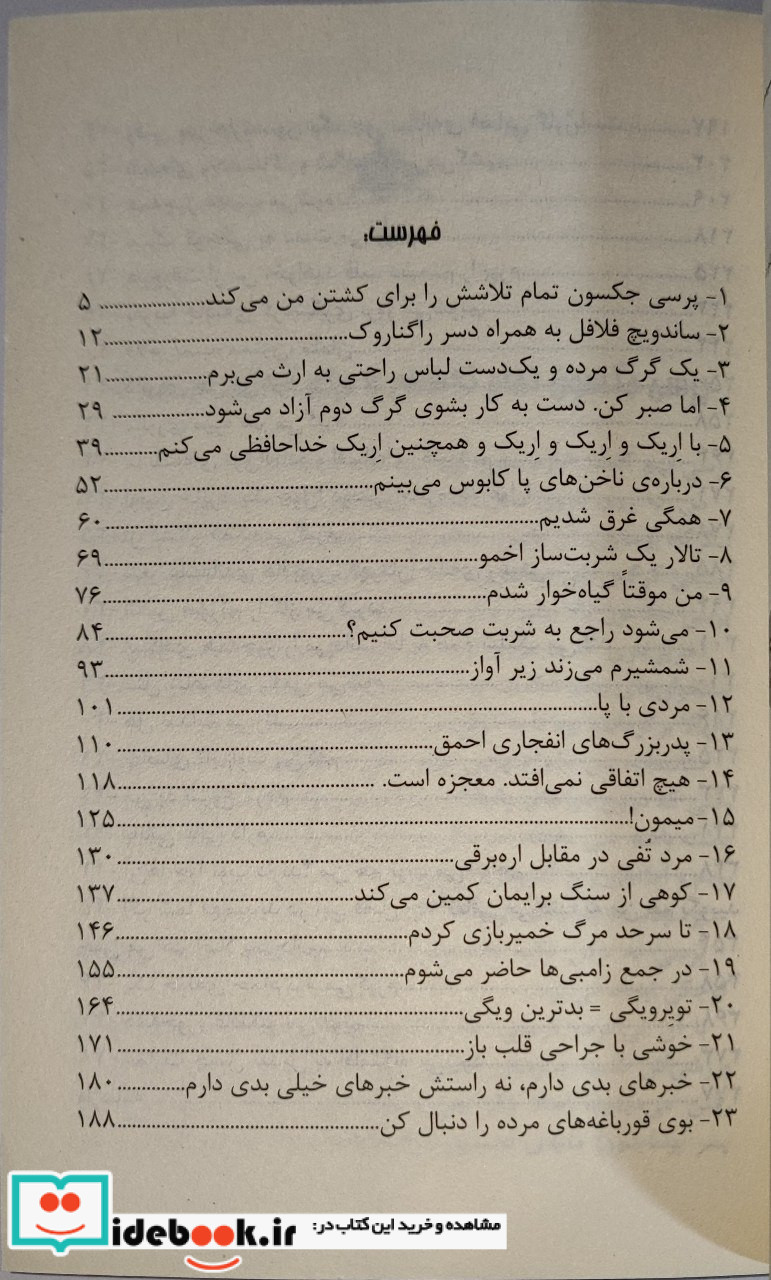 فهرست:
۱- پرسی جکسون تمام تلاشش را برای کشتن من می‌کند..................... ۵
۲- ساندویچ فلافل به همراه دسر راگناروک..................... ۱۲
۳- یک گرگ مرده و یک‌دست لباس راحتی به ارث می‌برم..................... ۲۱
۴- اما صبر کن. دست به کار بشوی گرگ دوم آزاد می‌شود..................... ۲۹
۵- با اِریک و اِریک و اِریک و همچنین اِریک خداحافظی می‌کنم........... ۳۹
۶- درباره‌ی ناخن‌های پا کابوس می‌بینم..................... ۵۲
۷- همگی غرق شدیم..................... ۶۰
۸- تالار یک شربت‌ساز اخمو..................... ۶۹
۹- من موقتاً گیاه‌خوار شدم..................... ۷۶
۱۰- می‌شود راجع به شربت صحبت کنیم؟..................... ۸۴
۱۱- شمشیرم می‌زند زیر آواز..................... ۹۳
۱۲- مردی با پا..................... ۱۰۱
۱۳- پدربزرگ‌های انفجاری احمق..................... ۱۱۰
۱۴- هیچ اتفاقی نمی‌افتد. معجزه است. ..................... ۱۱۸
۱۵- میمون!..................... ۱۲۵
۱۶- مرد تُفی در مقابل اره‌برقی..................... ۱۳۰
۱۷- کوهی از سنگ برایمان کمین می‌کند..................... ۱۳۷
۱۸- تا سرحد مرگ خمیربازی کردم..................... ۱۴۶
۱۹- در جمع زامبی‌ها حاضر می‌شوم..................... ۱۵۵
۲۰- تویِرویگی = بدترین ویگی..................... ۱۶۴
۲۱- خوشی با جراحی قلب باز..................... ۱۷۱
۲۲- خبرهای بدی دارم، نه راستش خبرهای خیلی بدی دارم............. ۱۸۰
۲۳- بوی قورباغه‌های مرده را دنبال کن..................... ۱۸۸
مشاهده و خرید این کتاب در:
idebook.ir